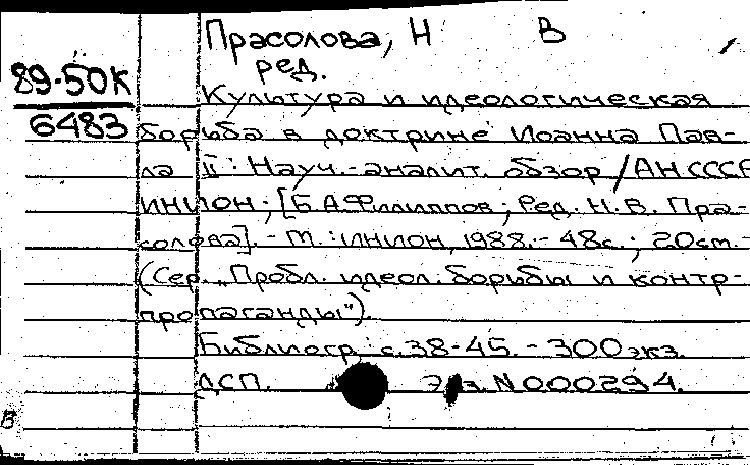 Прасолова, Н В
ред.
89-50К
6483
Культура и идеологическая
борьба в доктрине Иоанна Пав-
ла II: Науч.-аналит. обзор / АН СССР
ИНИОН; [Б.А.Филиппов; Ред. Н.В. Пра-
солова]. - М.: ИНИОН, 1988. - 48с.; 20см. -
(Сер. „Пробл. идеол. борьбы и контр-
пропаганды").
Библиогр.: с.38-45. - 300 экз.
ДСП. Экз. N 000294.
В